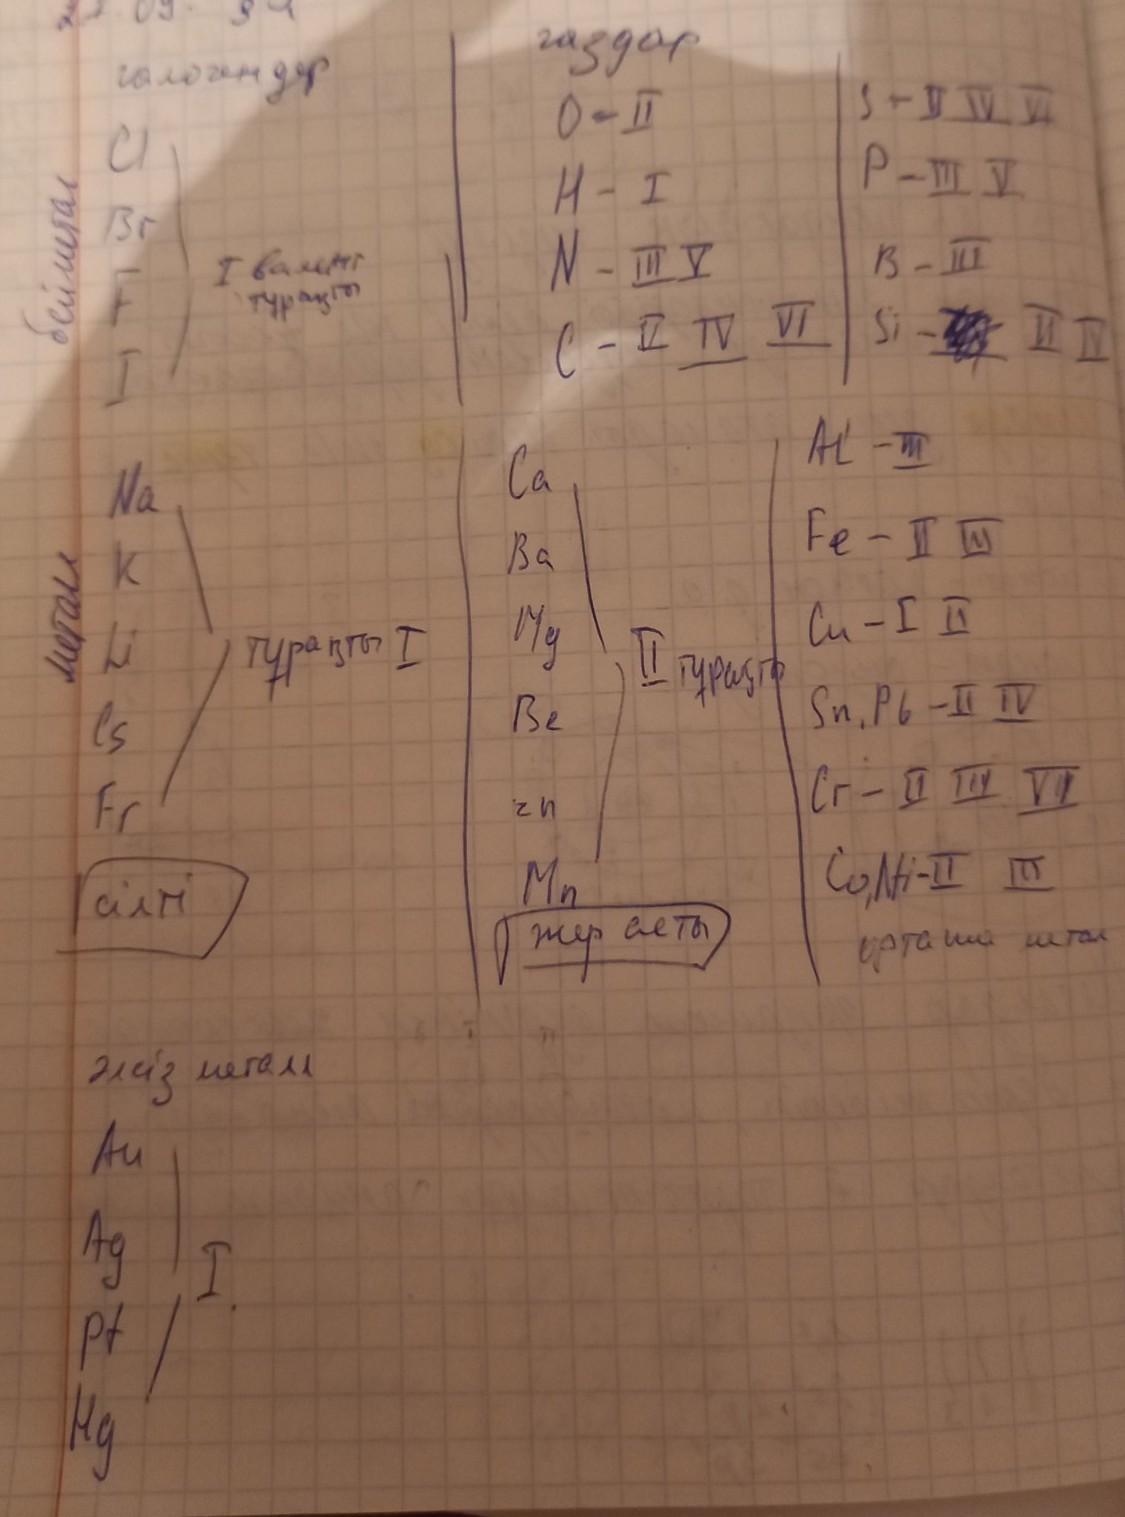 галогендер
Cl
Br
F
I
I валент
тұрақты
бейметал
газдар
O - II
H - I
N - III V
C - II IV VI
S - II IV VI
P - III V
B - III
Si - II IV
металл
Na
K
Li
Cs
Fr
тұрақты I
сілті
Ca
Ba
Mg
Be
zn
Mn
II тұрақты
жер сілты
Al - III
Fe - II III
Cu - I II
Sn, Pb - II IV
Cr - II III VII
Co, Ni - II III
орташа метал
әлсіз металл
Au
Ag
Pt
Hg
I